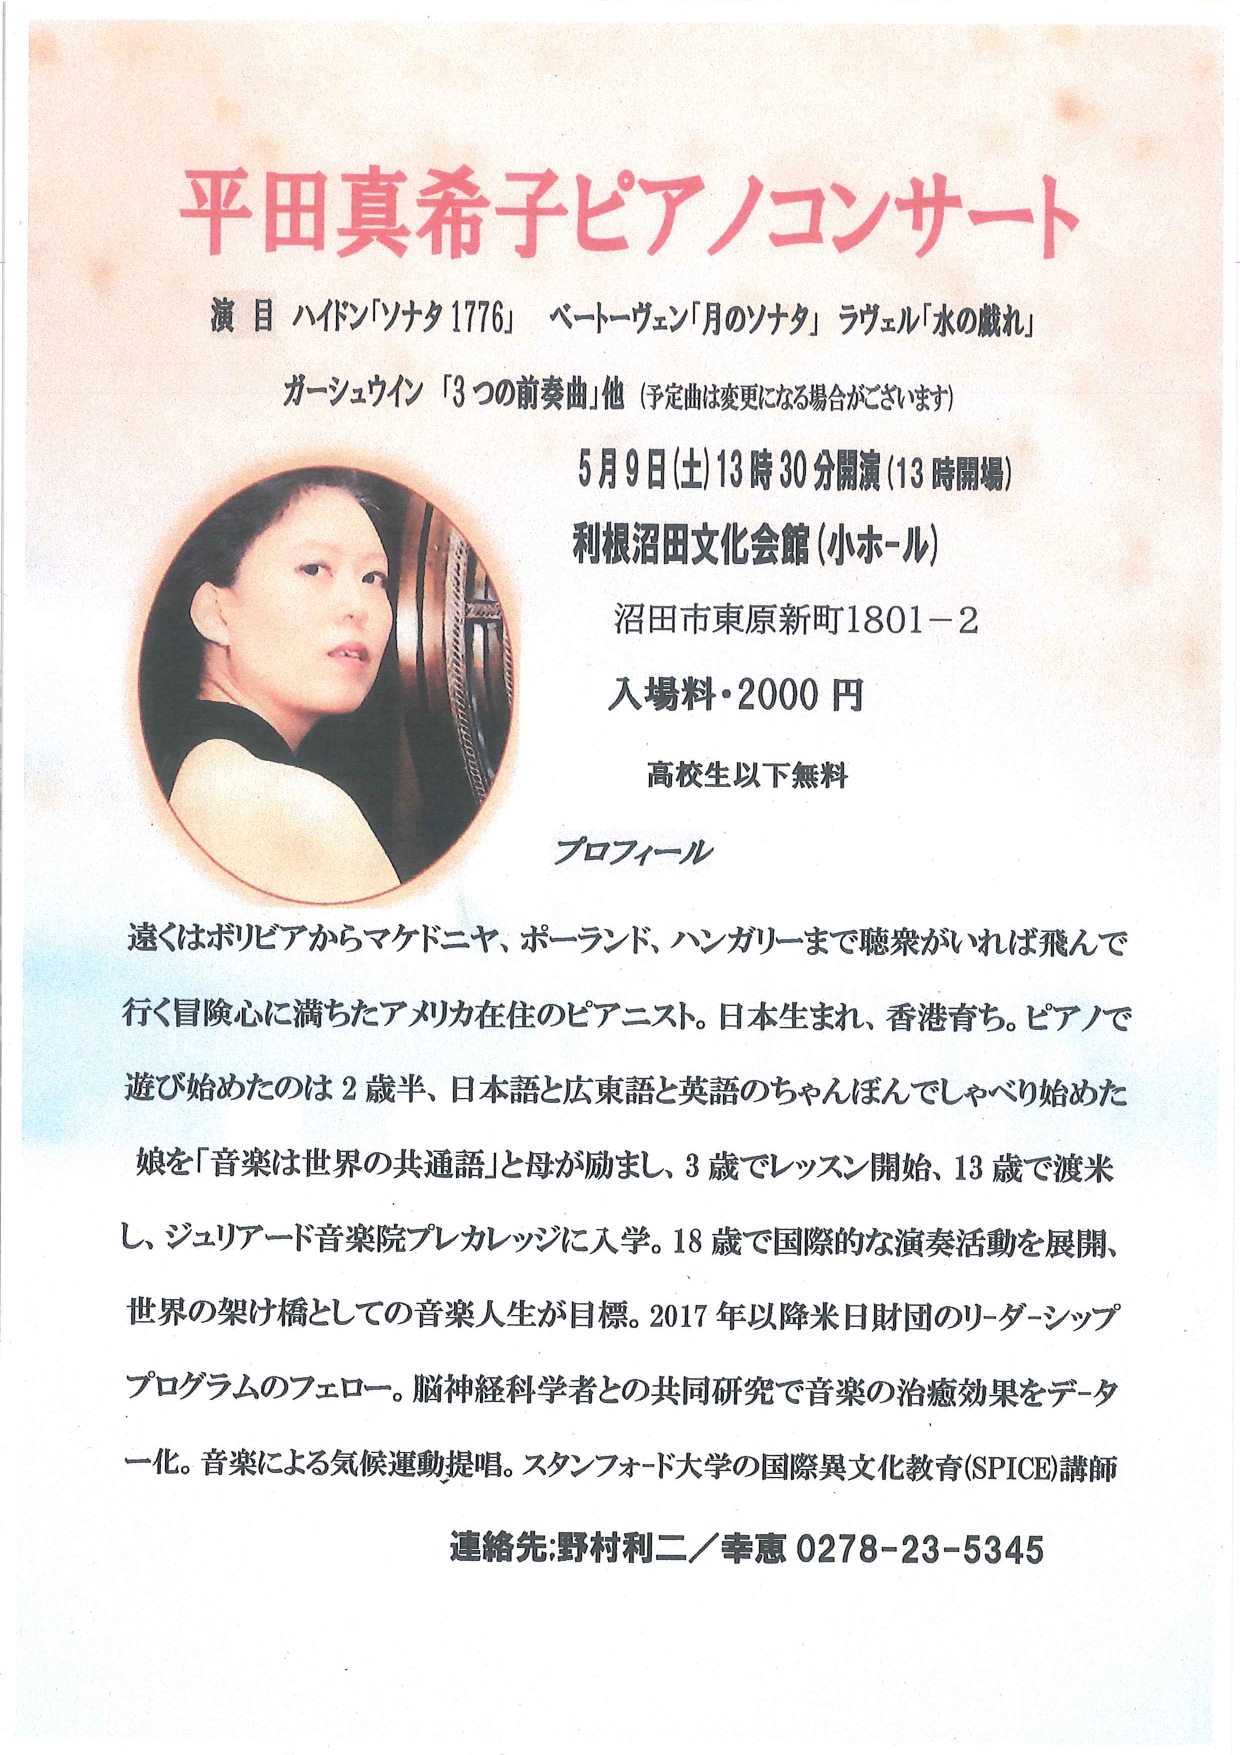 平田真希子ピアノコンサート
演 目 ハイドン｢ソナタ1776｣ ベートーヴェン｢月のソナタ｣ ラヴェル｢水の戯れ｣
ガーシュウイン ｢3つの前奏曲｣他 (予定曲は変更になる場合がございます)
5月9日(土)13時30分開演(13時開場)
利根沼田文化会館(小ホール)
沼田市東原新町1801－2
入場料・2000 円
高校生以下無料
プロフィール
遠くはボリビアからマケドニヤ、ポーランド、ハンガリーまで聴衆がいれば飛んで
行く冒険心に満ちたアメリカ在住のピアニスト。日本生まれ、香港育ち。ピアノで
遊び始めたのは 2 歳半、日本語と広東語と英語のちゃんぽんでしゃべり始めた
娘を｢音楽は世界の共通語｣と母が励まし、3 歳でレッスン開始、13 歳で渡米
し、ジュリアード音楽院プレカレッジに入学。18 歳で国際的な演奏活動を展開、
世界の架け橋としての音楽人生が目標。2017 年以降米日財団のリーダーシップ
プログラムのフェロー。脳神経科学者との共同研究で音楽の治癒効果をデータ
ー化。音楽による気候運動提唱。スタンフォード大学の国際異文化教育(SPICE)講師
連絡先;野村利二／幸恵 0278-23-5345